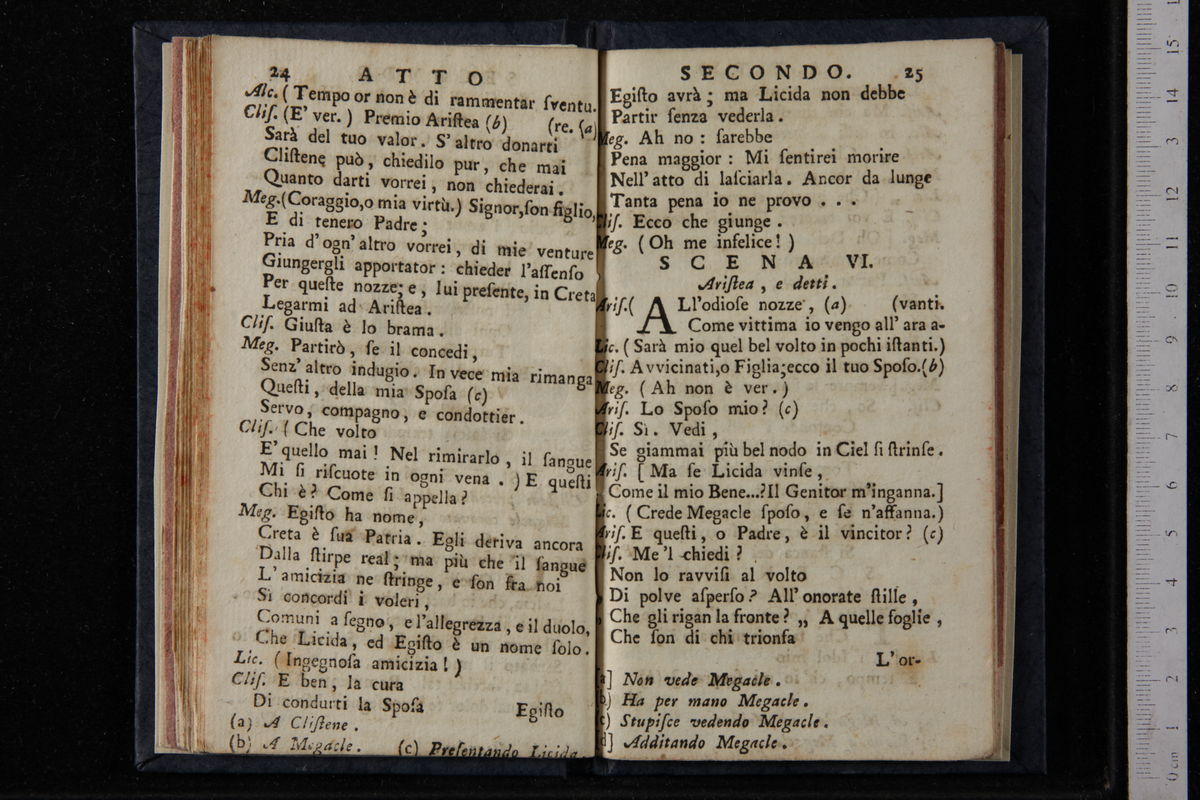 24 ATTO
Alc. ( Tempo or non è di rammentar ſventu.
Cliſ. (E' ver. ) Premio Ariſtea (b) (re. (a)
Sarà del tuo valor. S'altro donarti
Cliſtene può, chiedilo pur, che mai
Quanto darti vorrei, non chiederai.
Meg.(Coraggio,o mia virtù.) Signor,ſon figlio,
E di tenero Padre;
Pria d'ogn'altro vorrei, di mie venture
Giungergli apportator: chieder l'aſſenſo
Per queſte nozze; e, lui preſente, in Creta
Legarmi ad Ariſtea.
Cliſ. Giuſta è lo brama.
Meg. Partirò, ſe il concedi,
Senz'altro indugio. In vece mia rimanga
Queſti, della mia Spoſa (c)
Servo, compagno, e condottier.
Cliſ. ( Che volto
E' quello mai! Nel rimirarlo, il ſangue
Mi ſi riſcuote in ogni vena. ) E queſti
Chi è? Come ſi appella?
Meg. Egiſto ha nome,
Creta è ſua Patria. Egli deriva ancora
Dalla ſtirpe real; ma più che il ſangue
L'amicizia ne ſtringe, e ſon fra noi
Sì concordi i voleri,
Comuni a ſegno, e l'allegrezza, e il duolo,
Che Licida, ed Egiſto è un nome ſolo.
Lic. ( Ingegnoſa amicizia! )
Cliſ. E ben, la cura
Di condurti la Spoſa
Egiſto
(a) A Cliſtene.
(b) A Megacle. (c) Preſentando Licida.
SECONDO. 25
Egiſto avrà; ma Licida non debbe
Partir ſenza vederla.
Meg. Ah no: ſarebbe
Pena maggior: Mi ſentirei morire
Nell'atto di laſciarla. Ancor da lunge
Tanta pena io ne provo . . .
Cliſ. Ecco che giunge.
Meg. ( Oh me infelice! )
SCENA VI.
Ariſtea, e detti.
Ariſ.( ALl'odioſe nozze, (a) (vanti.
Come vittima io vengo all'ara a-
Lic. ( Sarà mio quel bel volto in pochi iſtanti.)
Cliſ. Avvicinati,o Figlia;ecco il tuo Spoſo.(b)
Meg. ( Ah non è ver. )
Ariſ. Lo Spoſo mio? (c)
Cliſ. Sì. Vedi,
Se giammai più bel nodo in Ciel ſi ſtrinſe.
Ariſ. [ Ma ſe Licida vinſe,
Come il mio Bene...?Il Genitor m'inganna.]
Lic. ( Crede Megacle ſpoſo, e ſe n'affanna.)
Ariſ. E queſti, o Padre, è il vincitor? (c)
Cliſ. Me 'l chiedi?
Non lo ravviſi al volto
Di polve aſperſo? All'onorate ſtille,
Che gli rigan la fronte? „ A quelle foglie,
Che ſon di chi trionfa
L'or-
[a] Non vede Megacle.
(b) Ha per mano Megacle.
(c) Stupiſce vedendo Megacle.
[d] Additando Megacle.